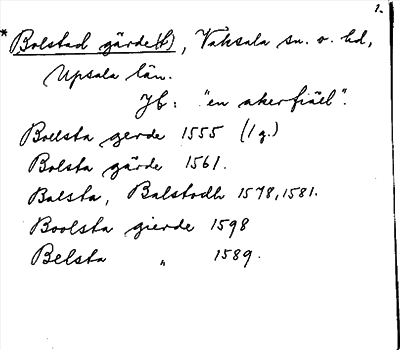 1.
* Bolstad gärde(t), Vaksala sn. o. hd,
Upsala län.
Jb: "en åkerfiäll".
Boelsta gerde 1555 (1 g.)
Bolsta gärde 1561.
Balsta, Balstadh 1578, 1581.
Boolsta gierde 1598
Belsta " 1589.